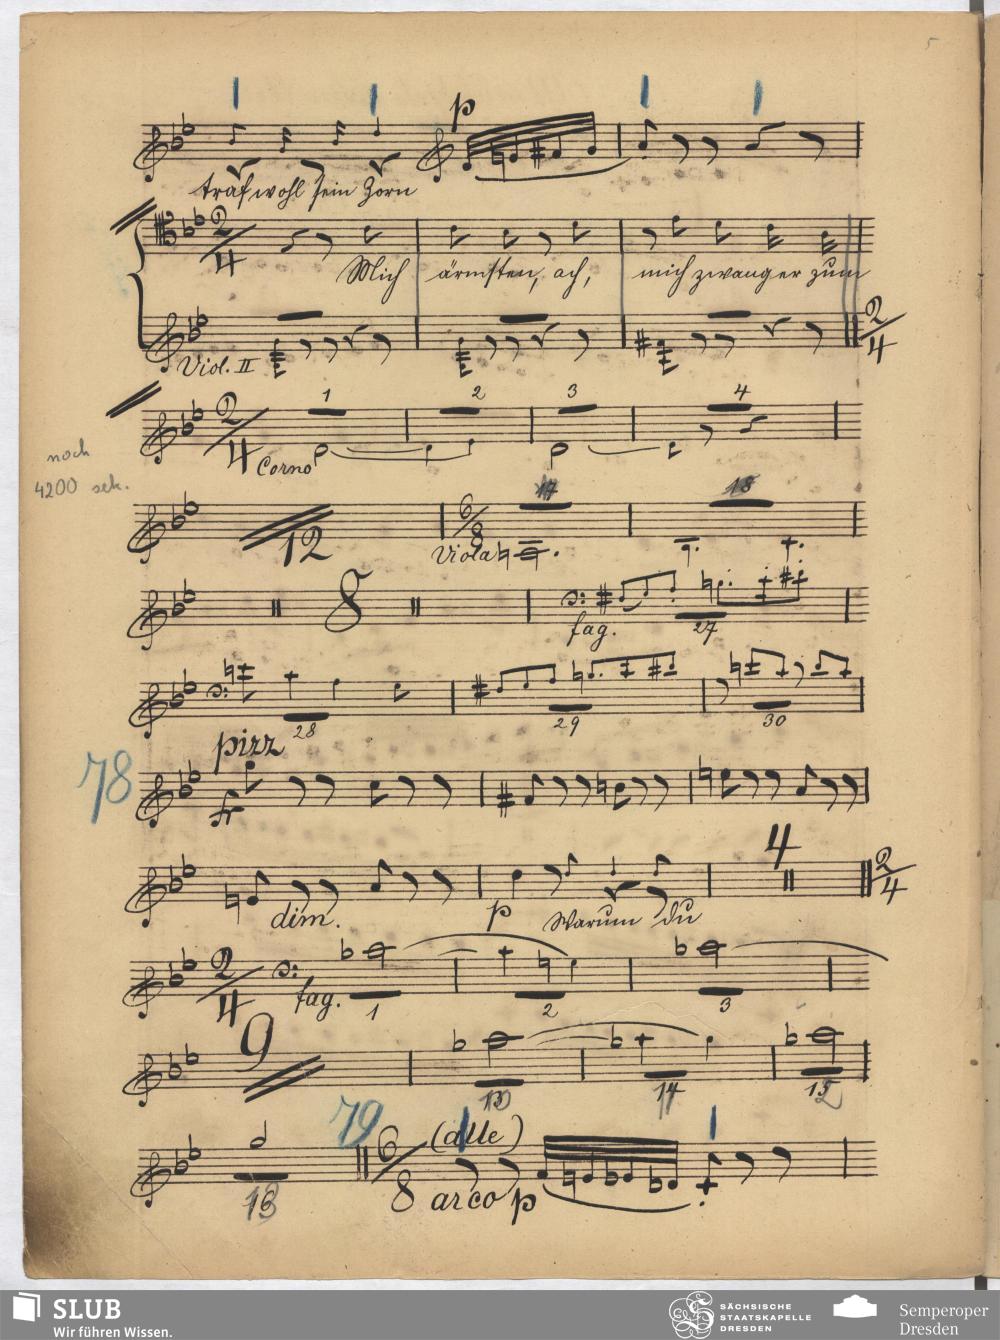 5
p
traf wohl sein Zorn
2/4
Mich ärmsten, ach, mich zwang er zum
Viol. II
2/4
2/4 1 2 3 4
Corno
noch
4200 sek.
12 6/8 17 18
Viola
8
fag. 27
28 29 30
78 pizz
fr
4
dim. p Warum du
2/4
2/4
fag. 1 2 3
9
13 14 15
79 (alle)
6/8 arco p
SLUB
Wir führen Wissen.
SÄCHSISCHE
STAATSKAPELLE
DRESDEN
Semperoper
Dresden